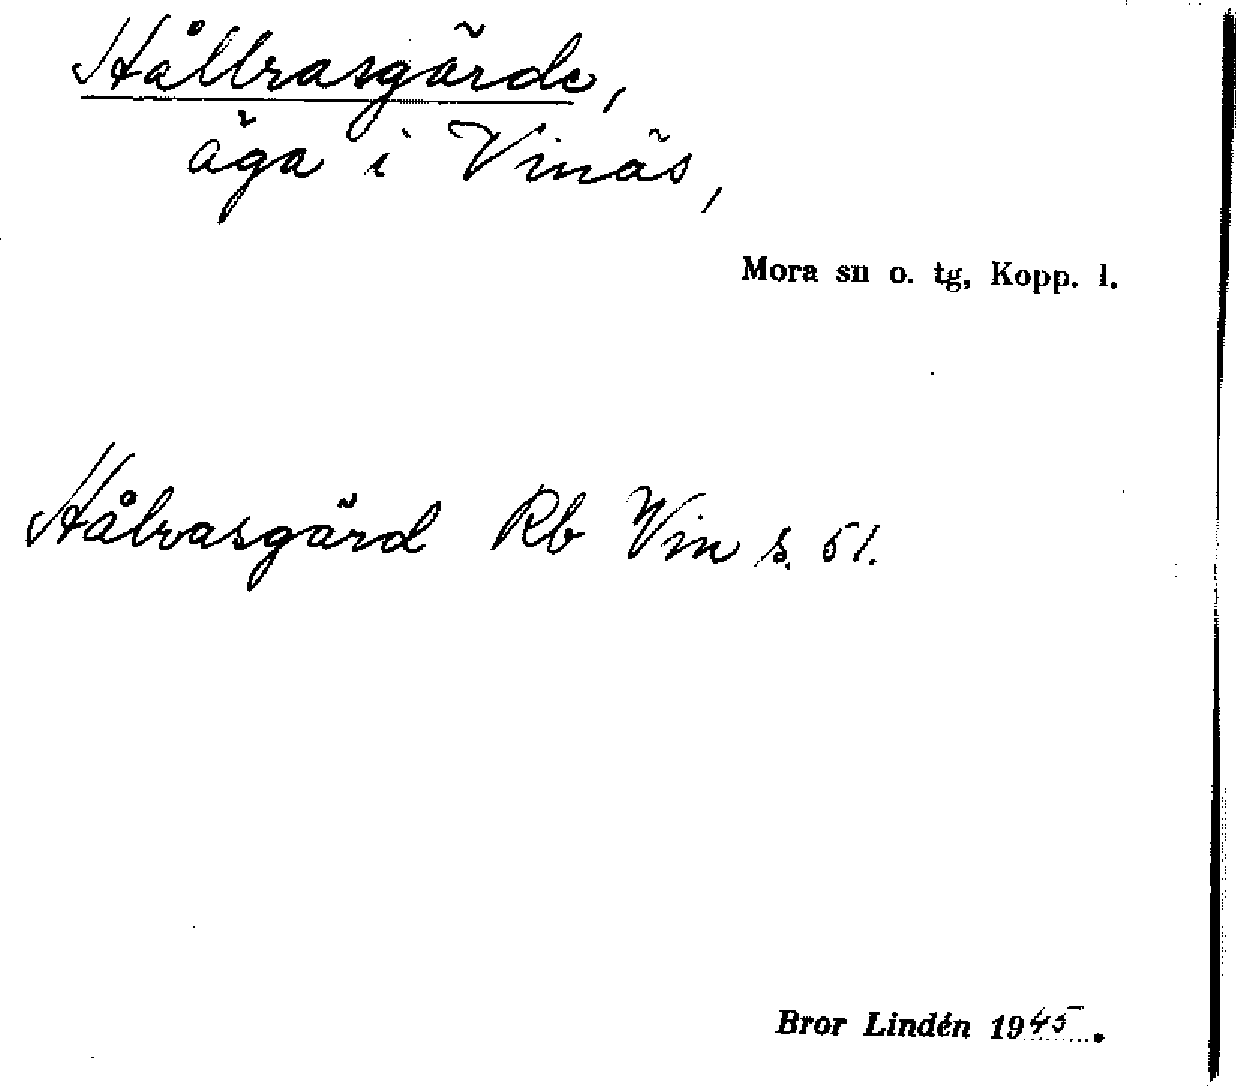 Hållrasgärde,
äga i Vinäs,
Mora sn o. tg, Kopp. l.
Hålvasgärd Rb Vin s. 51.
Bror Lindén 1945.